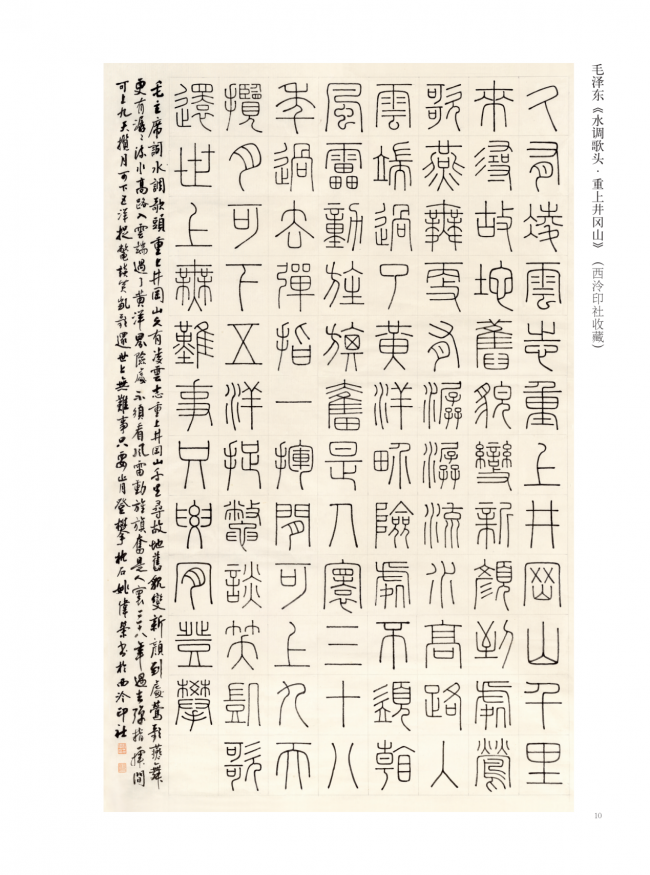 毛泽东《水调歌头·重上井冈山》（西泠印社收藏）
久有凌雲志重上井岡山千里
來尋故地舊貌變新顏到處鶯
歌燕舞更有潺潺流水高路入
雲端過了黃洋界險處不須看
風雷動旌旗奮是人寰三十八
年過去彈指一揮間可上九天
攬月可下五洋捉鱉談笑凱歌
還世上無難事只要肯登攀
毛主席詞水調歌頭重上井岡山久有凌雲志重上井岡山千里尋故地舊貌變新顏到處鶯歌燕舞
更有潺々流水高路入雲端過了黃洋界險處不須看風雷動旌旗奮是人寰三十八年過去彈指一揮間
可上九天攬月可下五洋捉鱉談笑凱歌還世上無難事只要肯登攀桃石姚偉榮書於西泠印社
10